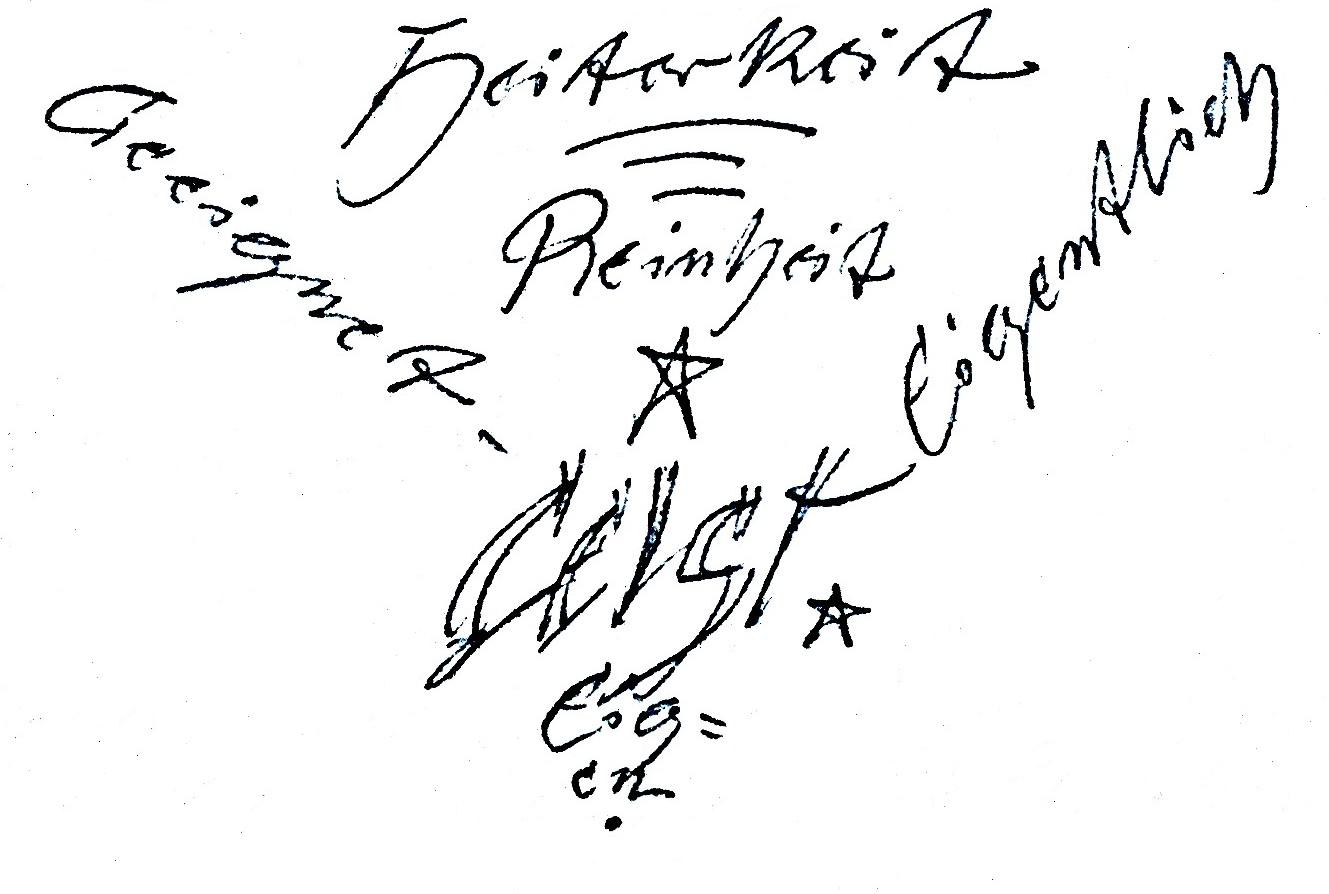 Heiterkeit
Reinheit
Geeignet
Eigentlich
Geist
Eig=
en